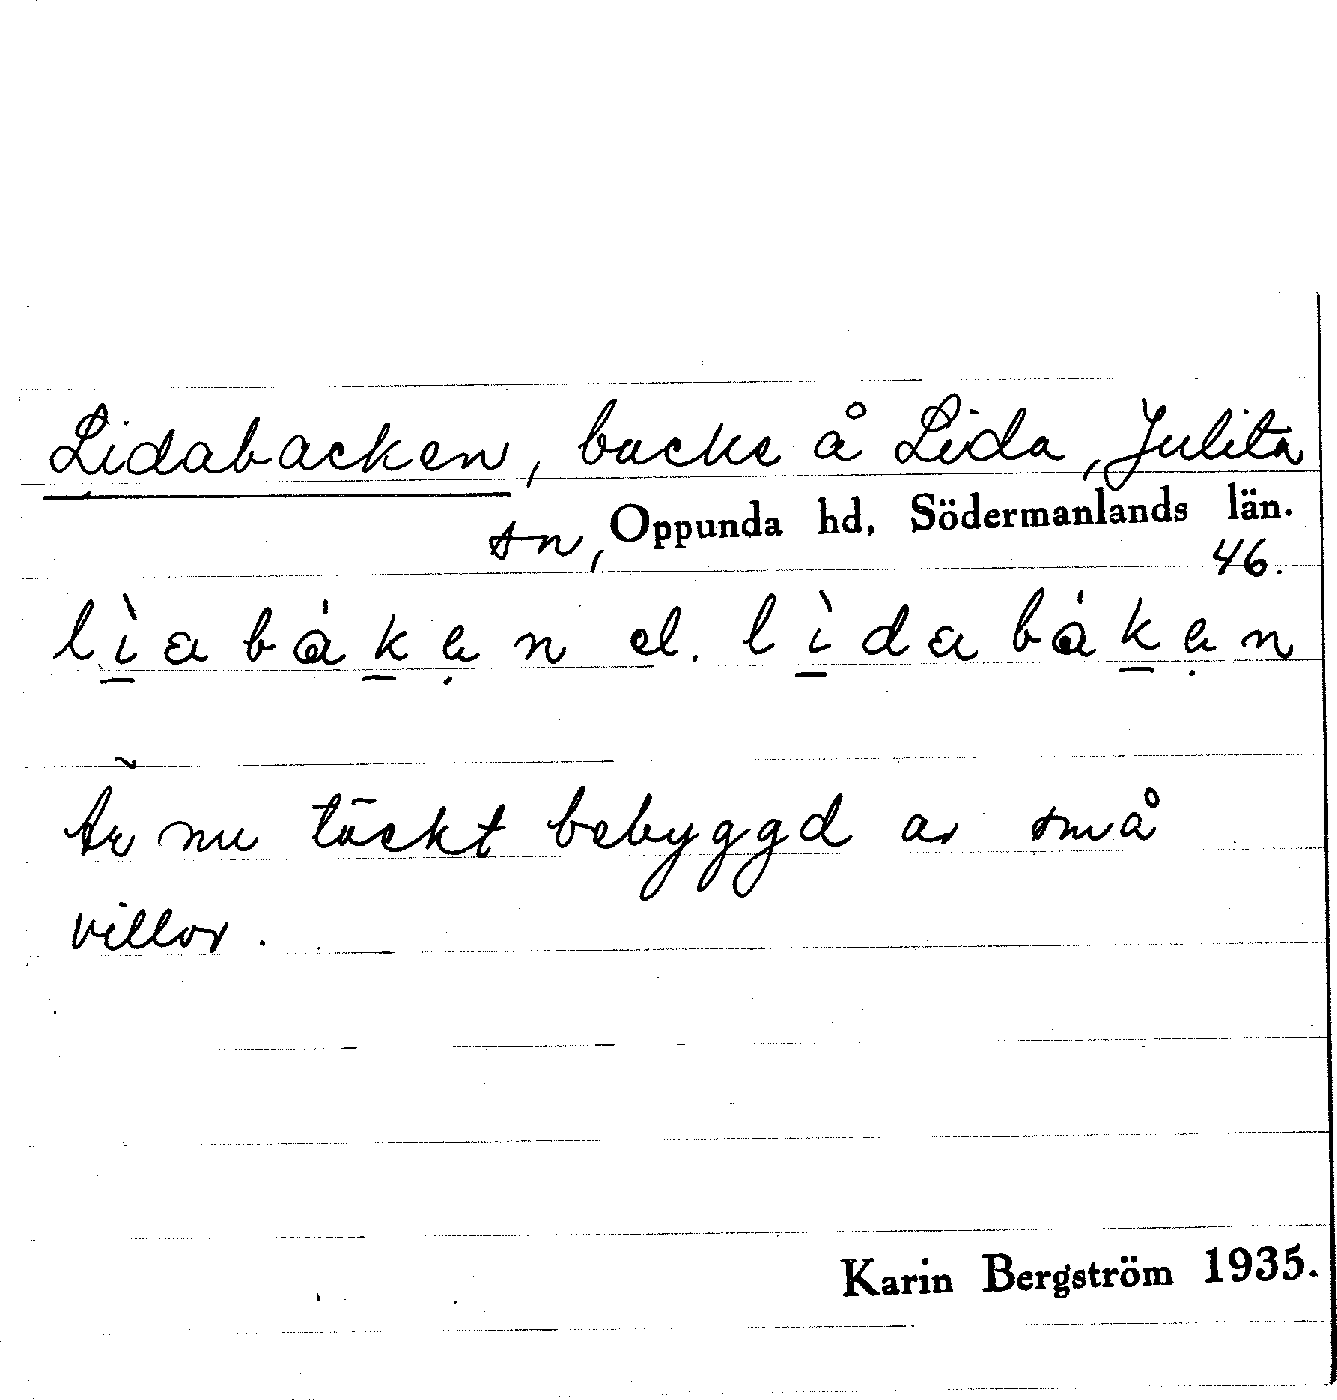 Lidabacken, backe å Lida, Julita
sn, Oppunda hd, Södermanlands län.
46.
lìabákẹn el. lìdabákẹn
Är nu täckt bebyggd av små
villor.
Karin Bergström 1935.